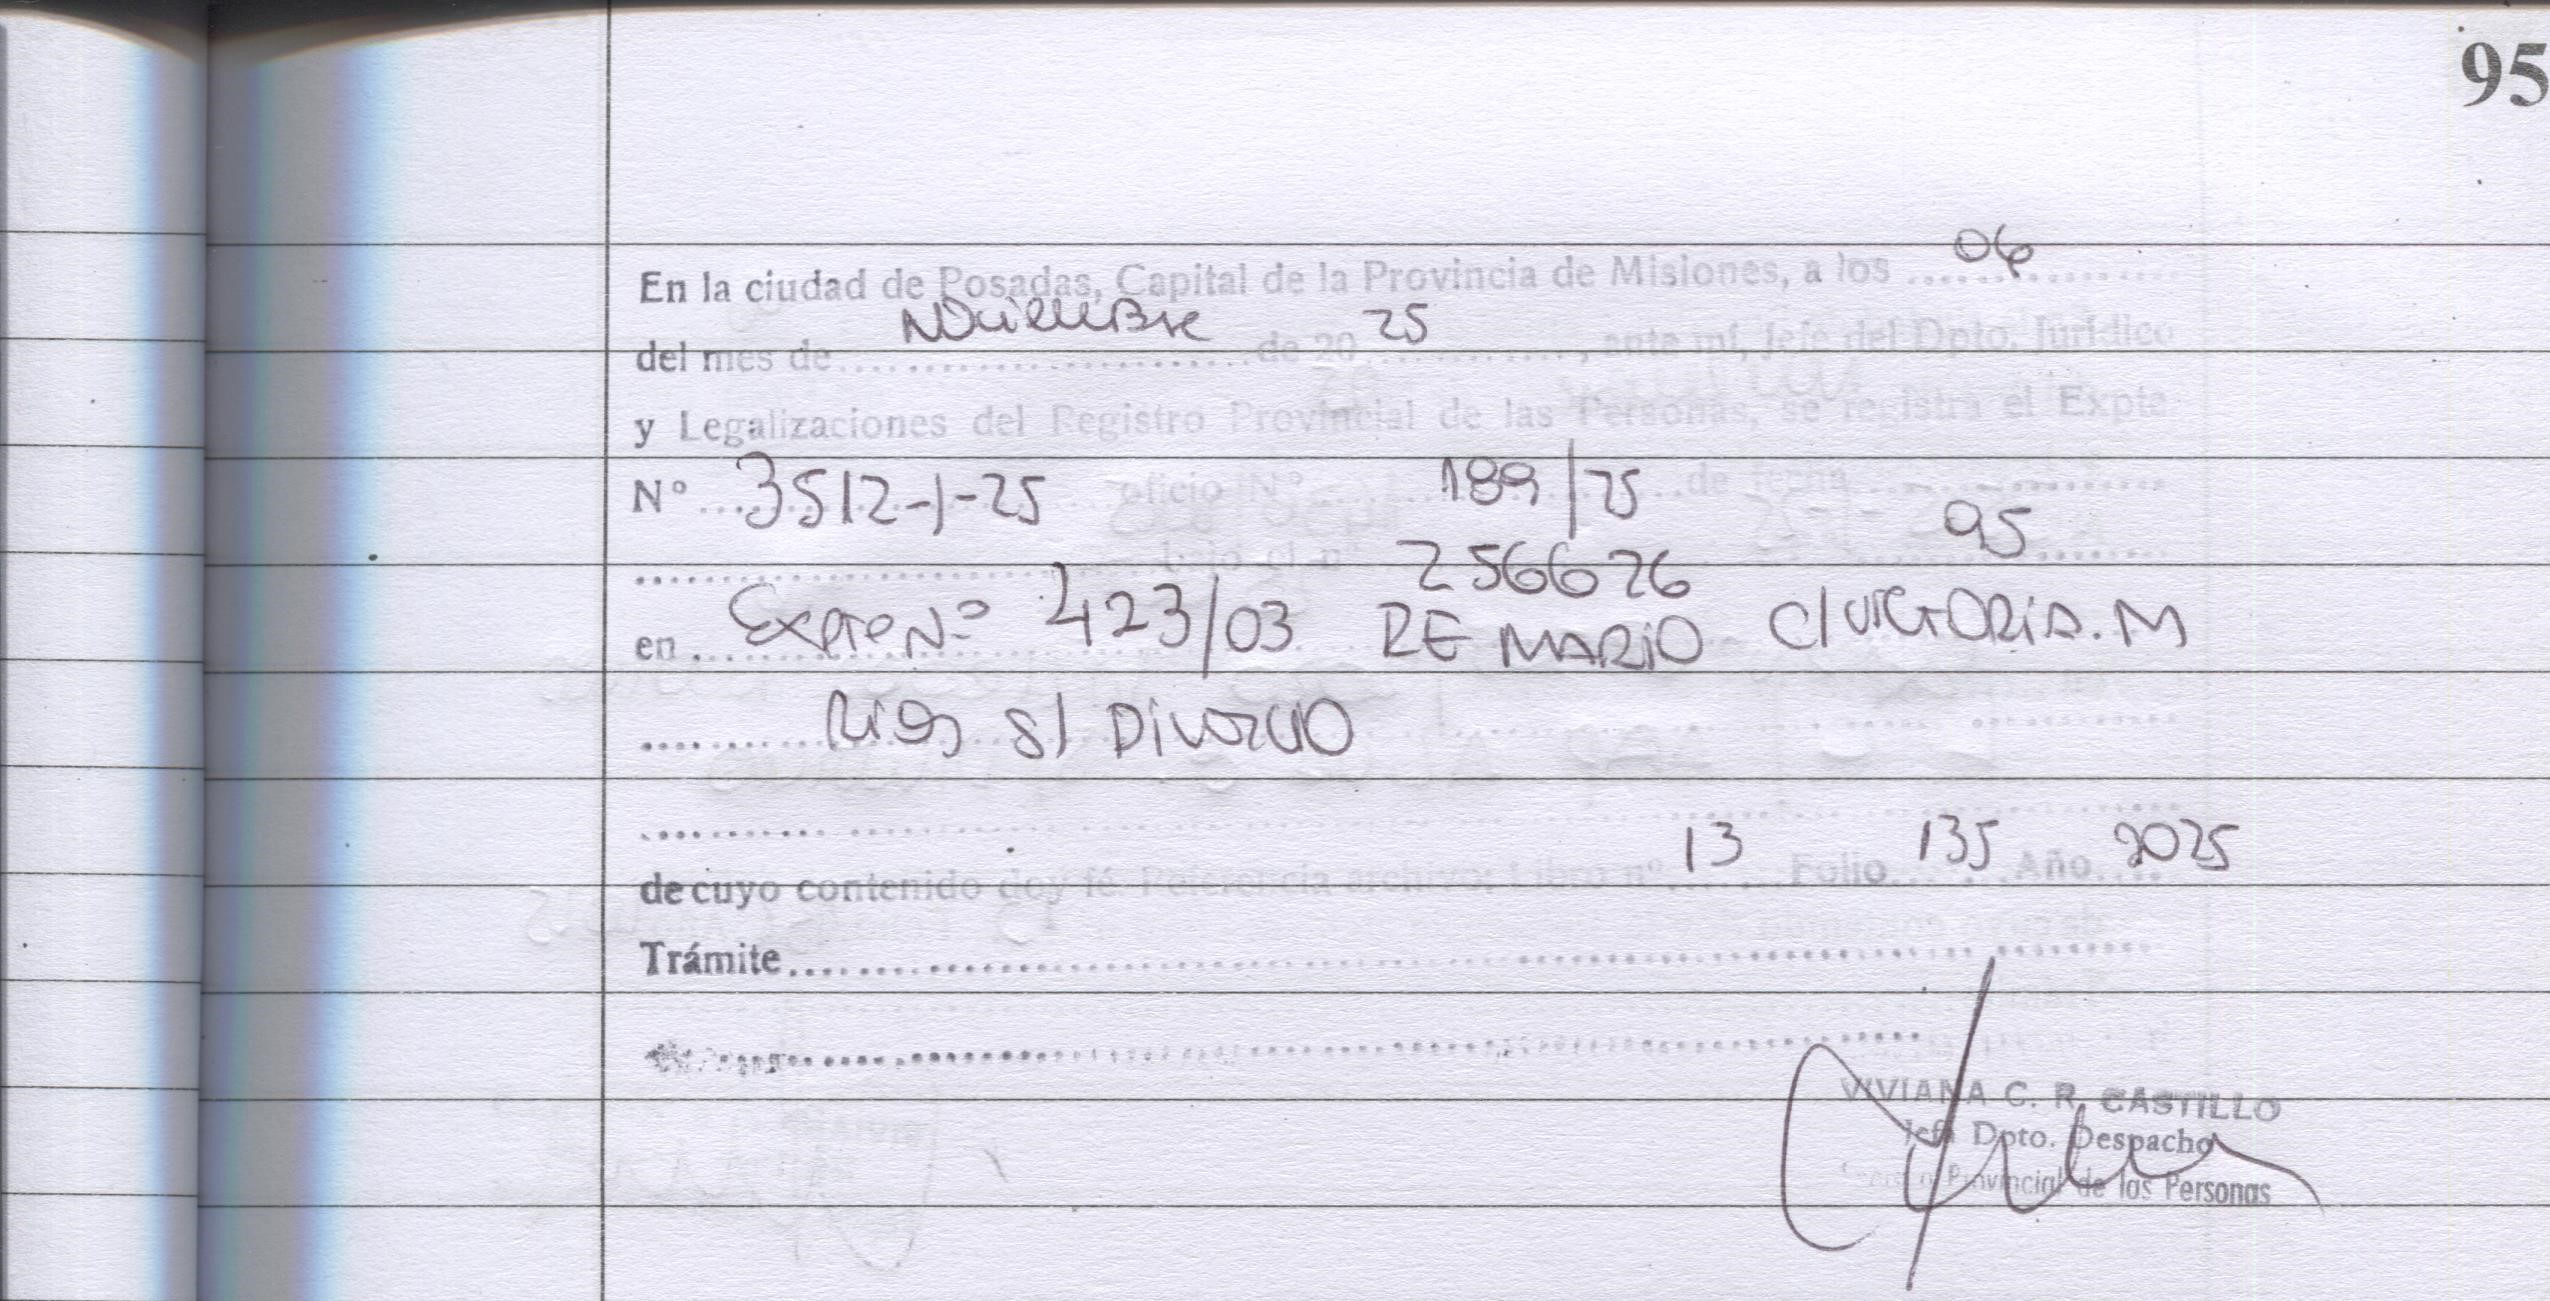 95
En la ciudad de Posadas, Capital de la Provincia de Misiones, a los 06
del mes de Noviembre de 20 25, ante mí, Jefe del Dpto. Jurídico
y Legalizaciones del Registro Provincial de las Personas, se registra el Expte
Nº 3512-1-25 oficio Nº 189/25 de fecha
bajo el nº 256626 95
en Expte Nº 423/03 RE MARIO C/ VICTORIA. M
Rios s/ Divorcio
de cuyo contenido doy fé. Referencia archivo: Libro nº 13 Folio 135 Año 2025
Trámite
VIVIANA C. R. CASTILLO
Jefa Dpto. Despacho
Provincial de las Personas